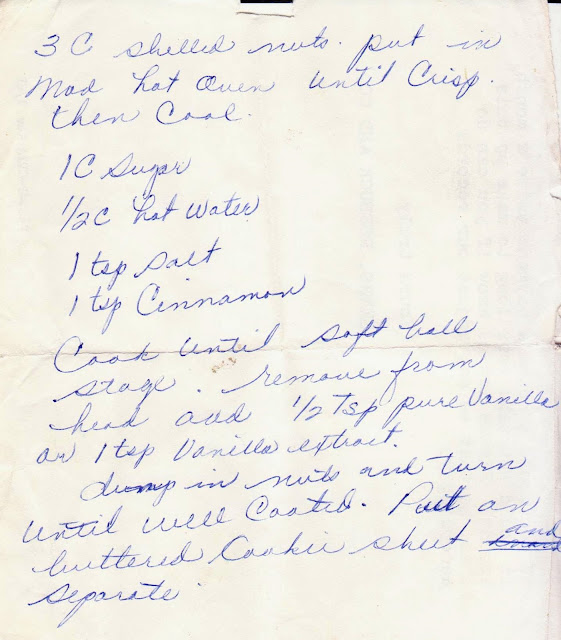 3 C shelled nuts. put in
Mod hot oven until crisp.
then cool.
1 C sugar
1/2 C hot water
1 tsp salt
1 tsp Cinnamon
Cook until soft ball
stage. remove from
head add 1/2 Tsp pure Vanilla
or 1 tsp Vanilla extract.
dump in nuts and turn
until well coated. Put on
buttered cookie sheet and
separate.